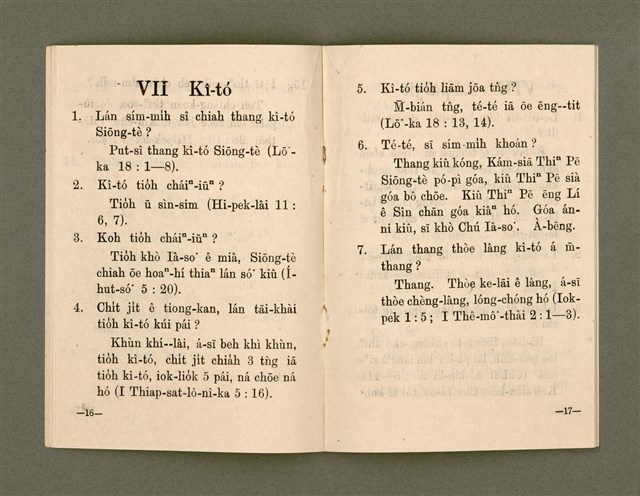 VII Kî-tó
1. Lán sím-mih sî chiah thang kî-tó
Siōng-tè ?
Put-sî thang kî-tó Siōng-tè (Lō͘-
ka 18 : 1—8).
2. Kî-tó tio̍h cháiⁿ-iūⁿ ?
Tio̍h ū sìn-sim (Hi-pek-lâi 11 :
6, 7).
3. Koh tio̍h cháiⁿ-iūⁿ ?
Tio̍h khò Iâ-so͘ ê miâ, Siōng-tè
chiah ōe hoaⁿ-hí thiaⁿ lán só͘ kiû (Í-
hut-só͘ 5 : 20).
4. Chi̍t ji̍t ê tiong-kan, lán tāi-khài
tio̍h kî-tó kúi pái ?
Khùn khí--lâi, á-sī beh khì khùn,
tio̍h kî-tó, chi̍t ji̍t chia̍h 3 tǹg iā
tio̍h kî-tó, iok-lio̍k 5 pái, ná chōe ná
hó (I Thiap-sat-lô-nî-ka 5 : 16).
—16—
5. Kî-tó tio̍h liām jōa tn̂g ?
M̄-bián tn̂g, té-té iā ōe ēng--tit
(Lō͘-ka 18 : 13, 14).
6. Té-té, sī sím-mi̍h khoán ?
Thang kiû kóng, Kám-siā Thiⁿ Pē
Siōng-tè pó-pì góa, kiû Thiⁿ Pē sià
góa bô chōe. Kiû Thiⁿ Pē ēng Lí
ê Sîn chān góa kiâⁿ hó. Góa án-
ni kiû, sī khò Chú Iâ-so͘. À-bēng.
7. Lán thang thòe lâng kî-tó á m̄-
thang ?
Thang. Thòe ke-lāi ê lâng, á-sī
thòe chèng-lâng, lóng-chóng hó (Iok-
pek 1 : 5 ; I Thê-mô͘-thài 2 : 1—3).
—17—